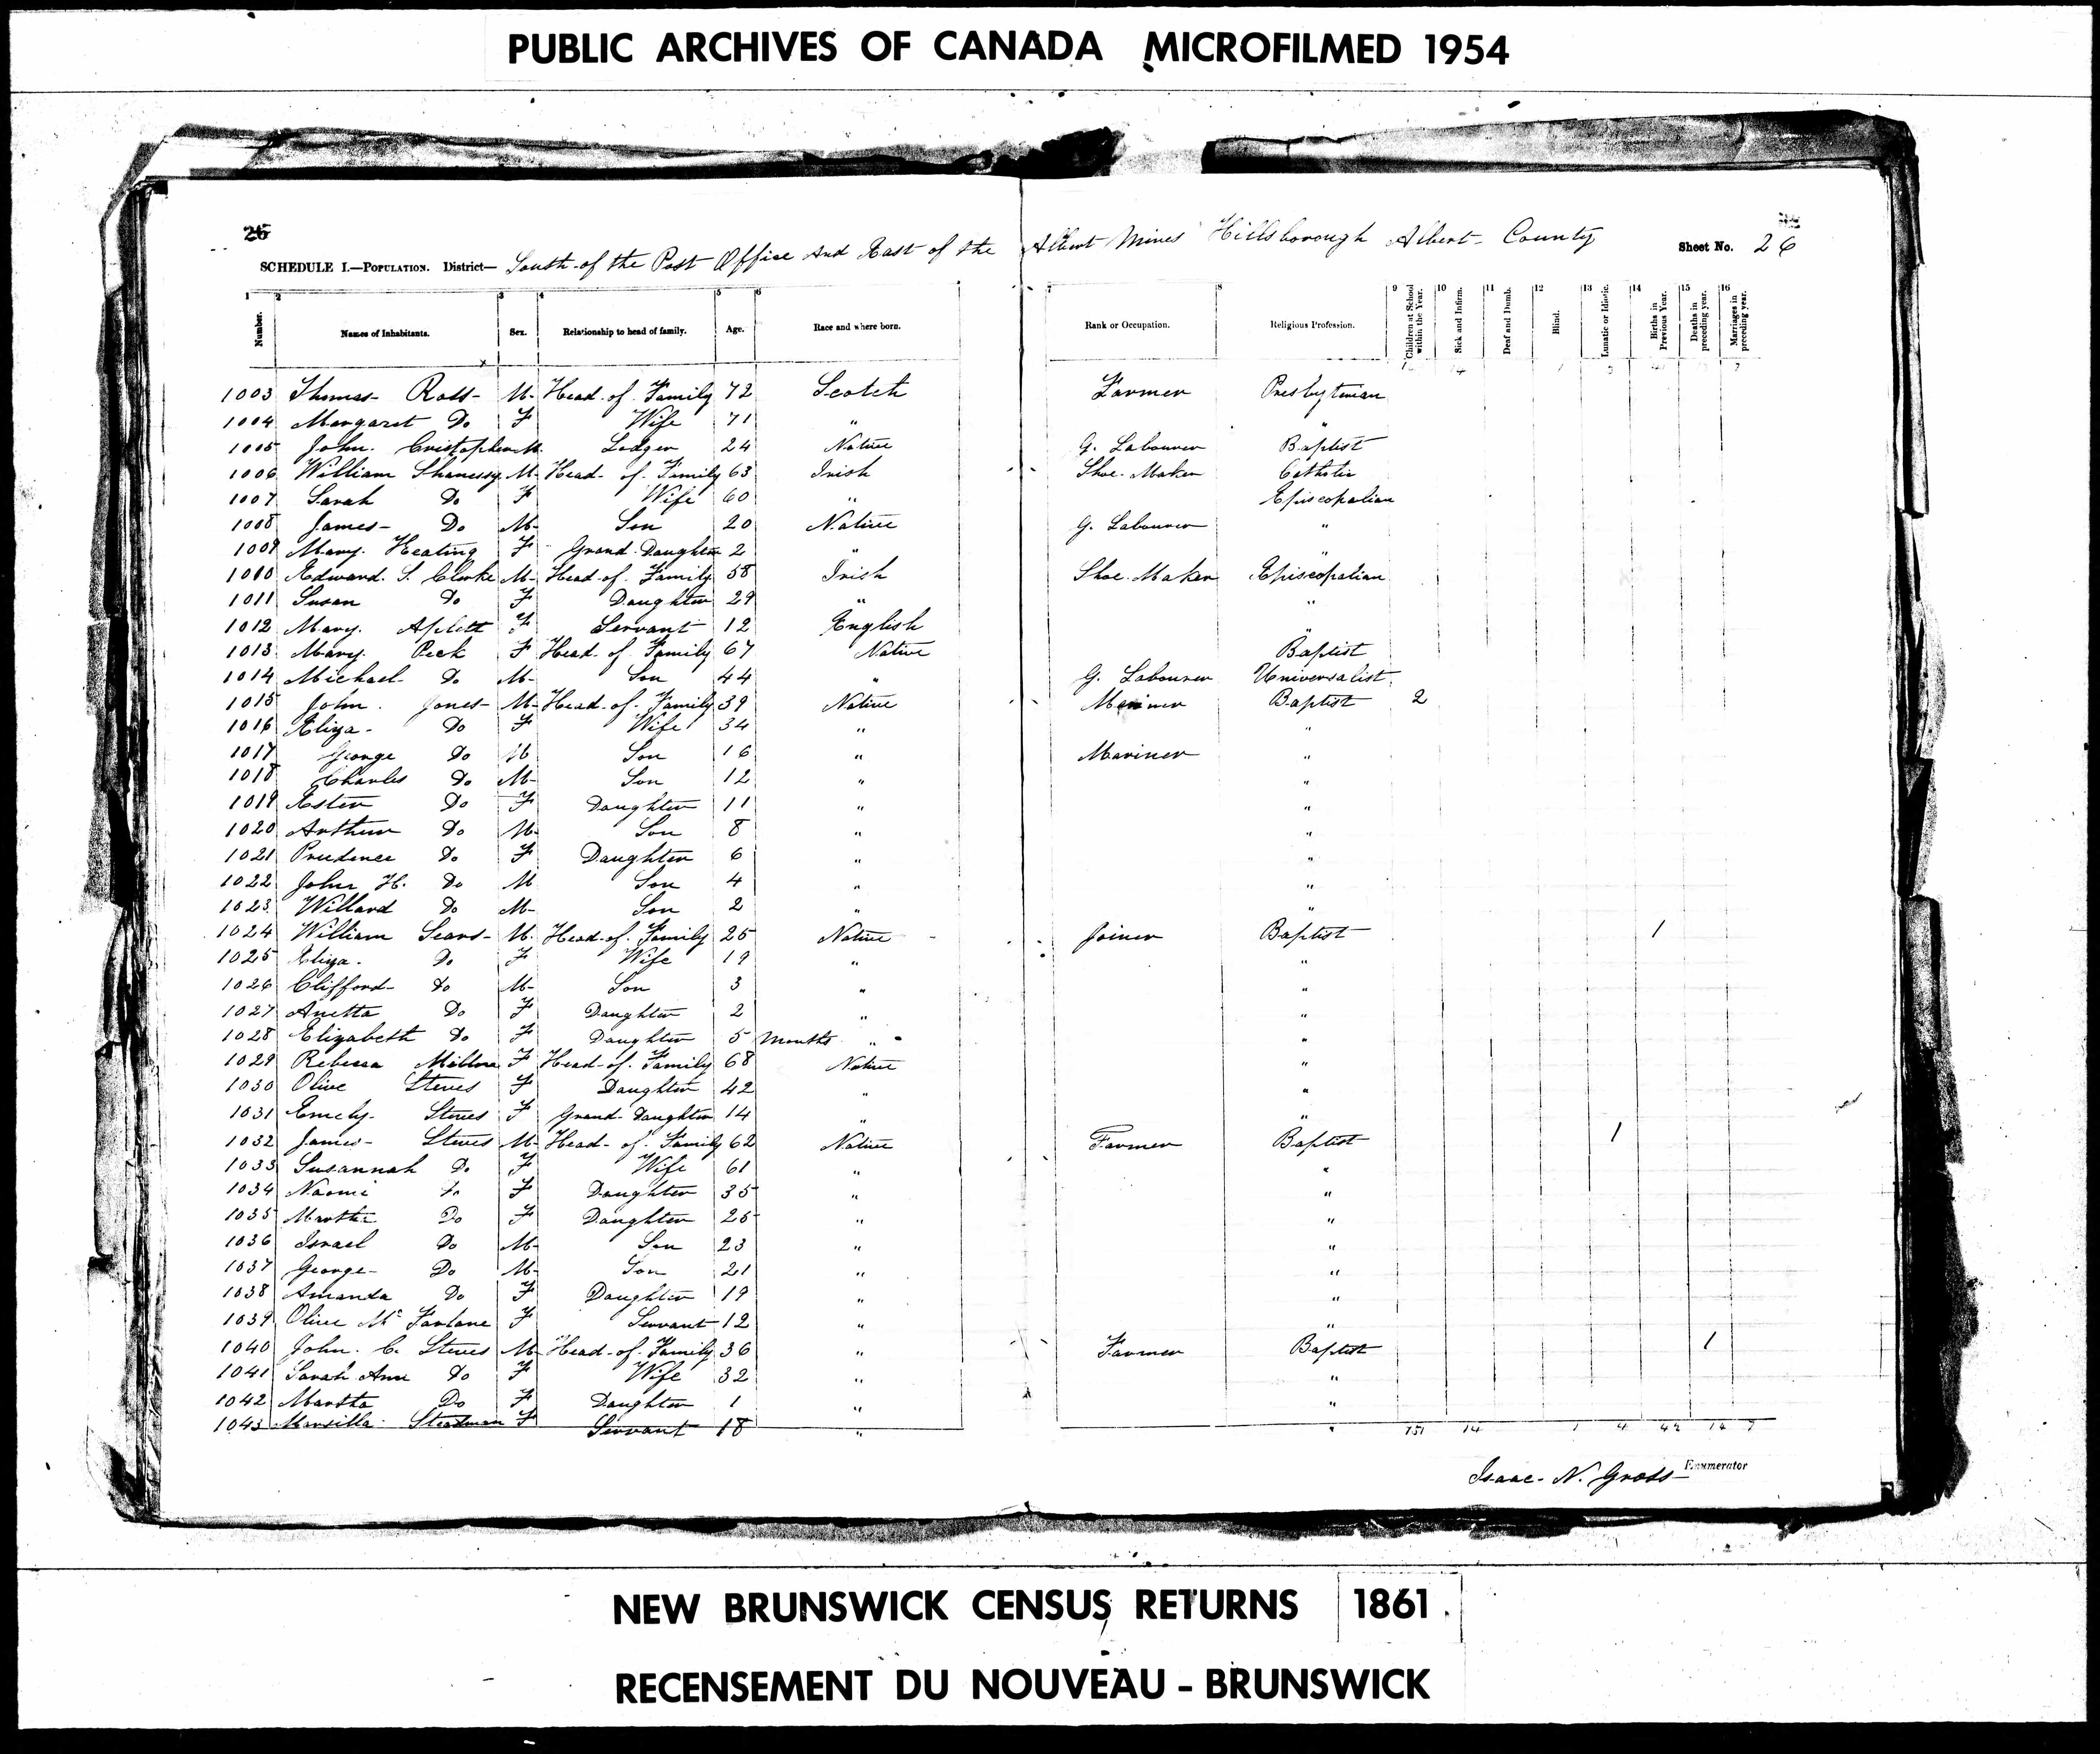 PUBLIC ARCHIVES OF CANADA MICROFILMED 1954
26
SCHEDULE I.—POPULATION. District— South of the Post Office And East of the Albert Mines Hillsborough Albert County Sheet No. 26
1 2 3 4 5 6 7 8 9 10 11 12 13 14 15 16
Number. Names of Inhabitants. Sex. Relationship to head of family. Age. Race and where born. Rank or Occupation. Religious Profession. Children at School within the Year. Sick and Infirm. Deaf and Dumb. Blind. Lunatic or Idiotic. Births in Previous Year. Deaths in preceding year. Marriages in preceding year.
1003 Thomas Ross M Head of Family 72 Scotch Farmer Presbyterian
1004 Margaret Do F Wife 71 " "
1005 John Cristopher M Lodger 24 Native G. Labourer Baptist
1006 William Shanussy M Head of Family 63 Irish Shoe Maker Catholic
1007 Sarah Do F Wife 60 " Episcopalian
1008 James Do M Son 20 Native G. Labourer "
1009 Mary Keating F Grand Daughter 2 " "
1010 Edward S. Clarke M Head of Family 58 Irish Shoe Maker Episcopalian
1011 Susan Do F Daughter 29 " "
1012 Mary F Servant 12 English "
1013 Mary Peck F Head of Family 67 Native Baptist
1014 Michael Do M Son 44 " G. Labourer Universalist
1015 John Jones M Head of Family 39 Native Baptist 2
1016 Eliza Do F Wife 34 " "
1017 George Do M Son 16 " Mariner "
1018 Charles Do M Son 12 " "
1019 Ester Do F Daughter 11 " "
1020 Arthur Do M Son 8 " "
1021 Prudence Do F Daughter 6 " "
1022 John H. Do M Son 4 " "
1023 Willard Do M Son 2 " "
1024 William Sears M Head of Family 25 Native Joiner Baptist 1
1025 Eliza Do F Wife 19 " "
1026 Clifford Do M Son 3 " "
1027 Anetta Do F Daughter 2 " "
1028 Elizabeth Do F Daughter 5 Months " "
1029 Rebecca F Head of Family 68 Native "
1030 Olive Steves F Daughter 42 " "
1031 Emely Steves F Grand Daughter 14 " "
1032 James Steves M Head of Family 62 Native Farmer Baptist 1
1033 Susannah Do F Wife 61 " "
1034 Naomi Do F Daughter 35 " "
1035 Martha Do F Daughter 25 " "
1036 Israel Do M Son 23 " "
1037 George Do M Son 21 " "
1038 Amanda Do F Daughter 19 " "
1039 Olive Mc Farlane F Servant 12 " "
1040 John C. Steves M Head of Family 36 " Farmer Baptist 1
1041 Sarah Ann Do F Wife 32 " "
1042 Martha Do F Daughter 1 " "
1043 Marsilla Steadman F Servant 18 " " 151 14 1 4 42 14 7
Isaac N. Gross Enumerator
NEW BRUNSWICK CENSUS RETURNS 1861
RECENSEMENT DU NOUVEAU - BRUNSWICK